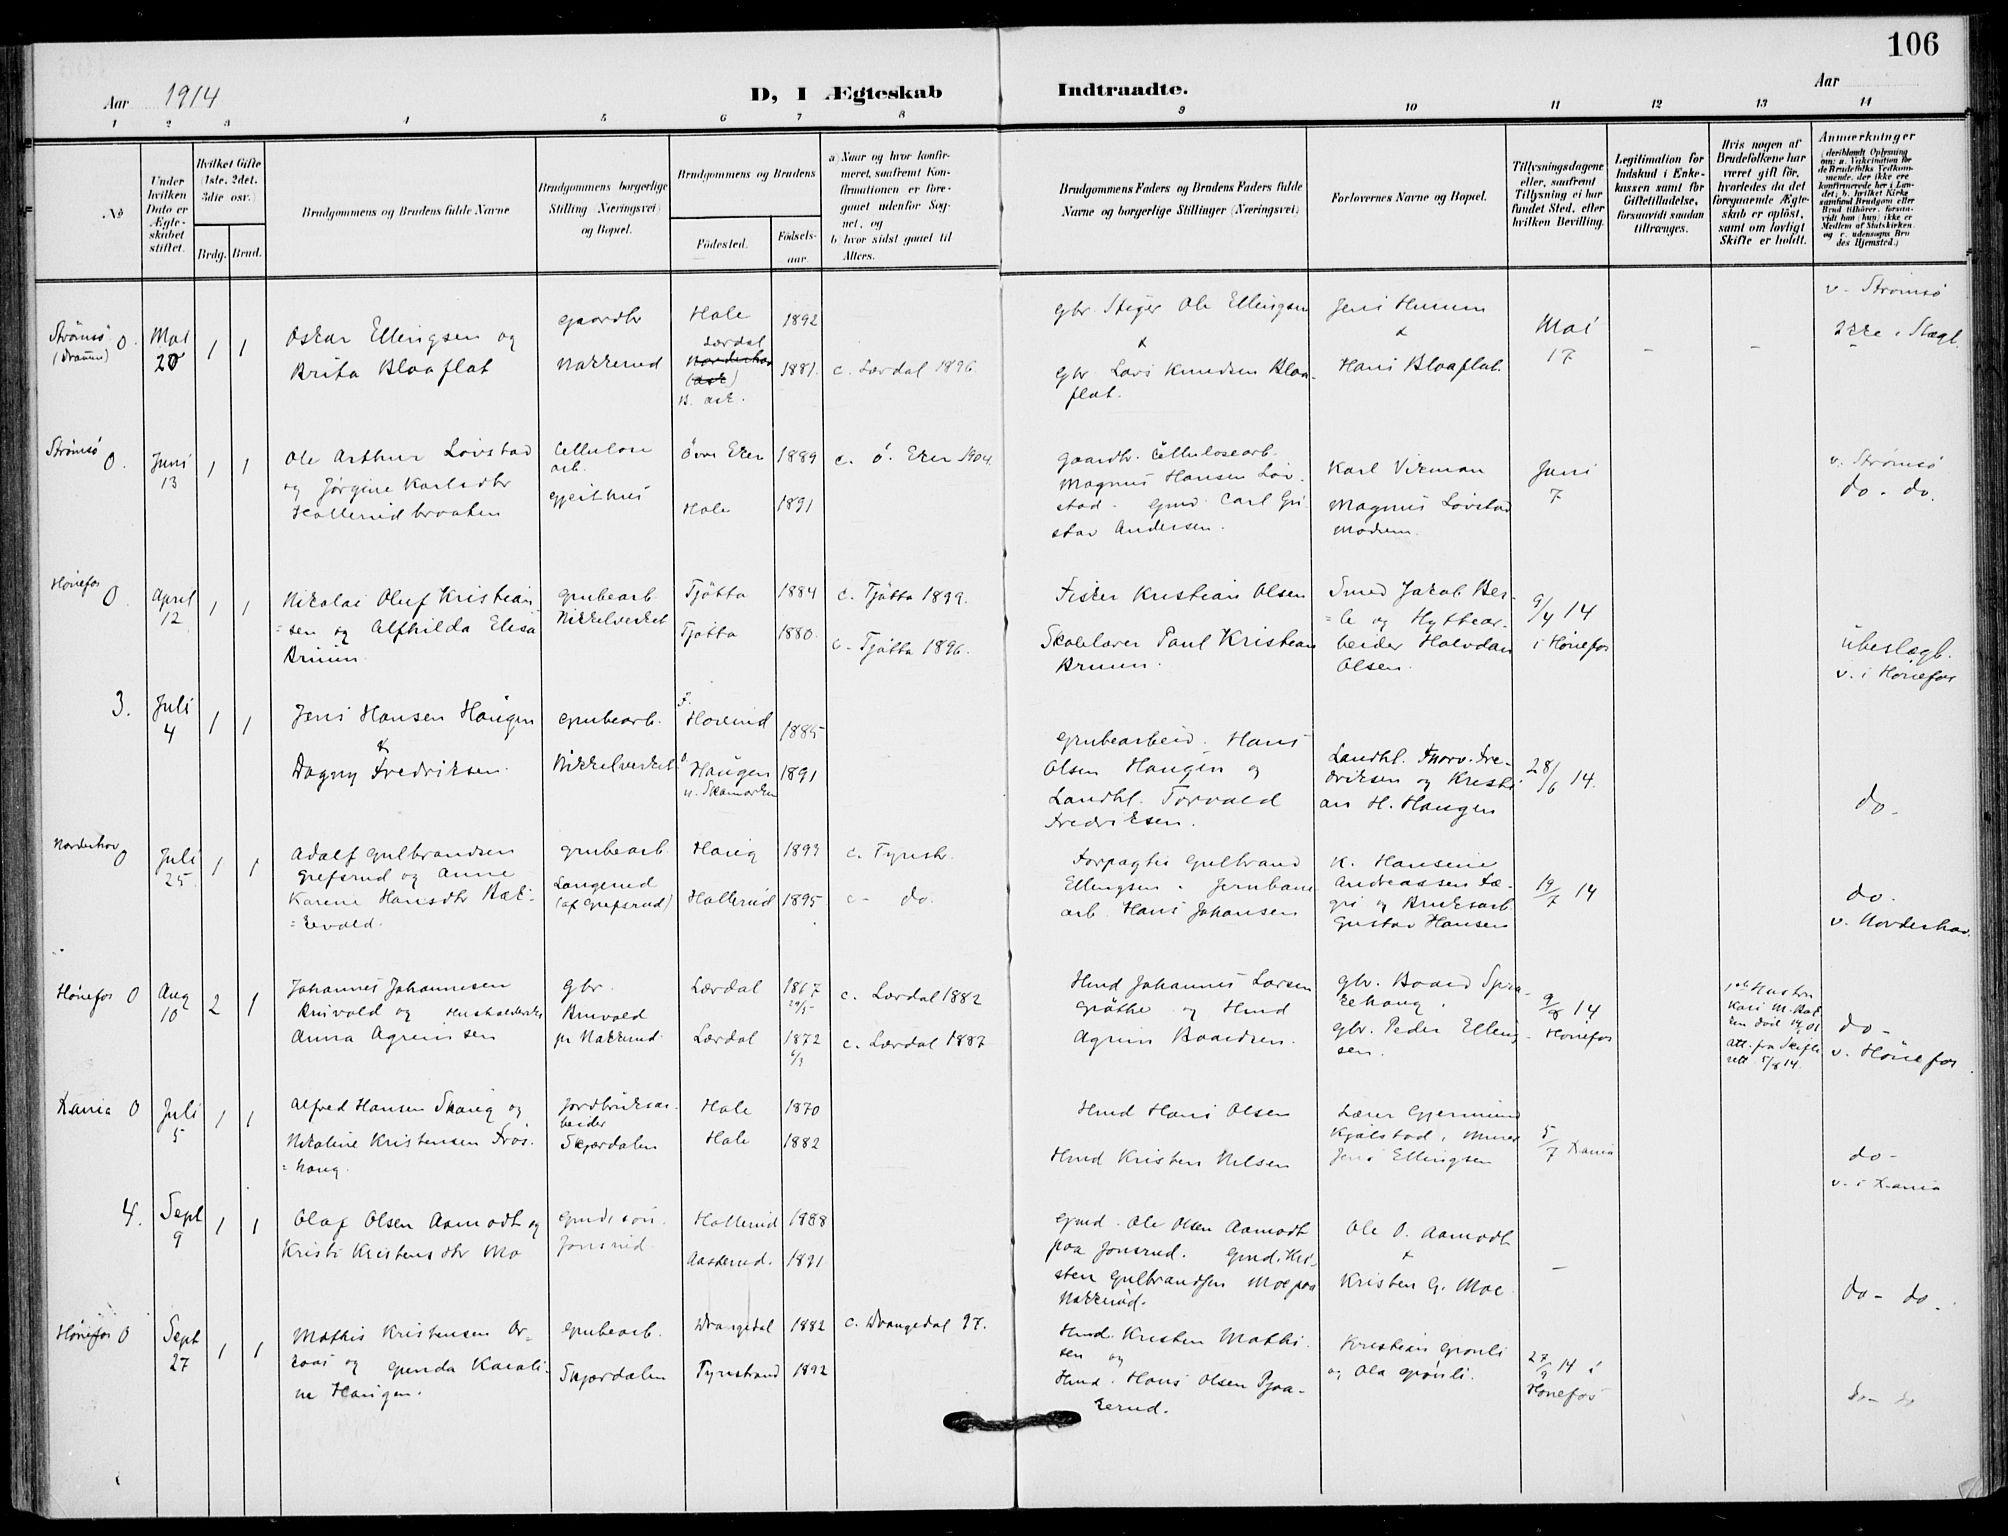 106
Aar 1914
D, I Ægteskab Indtraadte.
Aar
1 2 3 4 5 6 7 8 9 10 11 12 13 14
No
Under hvilken Dato er Ægteskabet stiftet.
Hvilket Gifte (1ste, 2det, 3die osv.)
Brdg. Brud.
Brudgommens og Brudens fulde Navne
Brudgommens borgerlige Stilling (Næringsvei) og Bopæl.
Brudgommens og Brudens
Fødested.
Fødsels-aar.
a) Naar og hvor konfirmeret, saafremt Konfirmationen er foregaaet udenfor Sognet, og
b) hvor sidst gaaet til Alters.
Brudgommens Faders og Brudens Faders fulde Navne og borgerlige Stillinger (Næringsvei)
Forlovernes Navne og Bopæl.
Tillysningsdagene eller, saafremt Tillysning ei har fundet Sted, efter hvilken Bevilling.
Legitimation for Indskud i Enkekassen samt for Giftetilladelse, forsaavidt saadan tiltrænges.
Hvis nogen af Brudefolkene har været gift før, hvorledes da det foregaaende Ægteskab er opløst, samt om lovligt Skifte er holdt.
Anmerkninger (deriblandt Oplysning om: a. Vakcination for de Brudefolks Vedkommende, der ikke ere konfirmerede her i Landet; b. hvilket Kirkesamfund Brudgom eller Brud tilhører, forsaavidt han (hun) ikke er Medlem af Statskirken, og c. udensogns Brudes Hjemsted.)
Strömsö (Drammen) 0. Mai 20 1 1
Oskar Ellingsen og
Brita Blaaflat
gaardbr
Nakkerud
Hole 1892
Lærdal
Norderhov
(Ask)
B. Ask.
1881. c. Lærdal 1896
gbr. Steger Ole Ellingsen
&
gbr Lars Knudsen Blaa-
flat.
Jens Hurum
&
Hans Blaaflat.
Mai
17
-
-
v. Strömsö
ikke i Slægt.
Strömsö 0. Juni 13 1 1
Ole Arthur Lövstad
og Jørgine Karlsdtr
Hallerudbraaten
Cellulose
arb.
Gjeithus
Övre Eker 1889 c. ö. Eker 1904.
Hole 1891
gaardbr. Cellulosearb.
Magnus Hansen Löv-
stad. gmd. Carl Gu
stav Andersen.
Karl Vikman
Magnus Lövstad
Modum.
Juni
7
v. Strömsö
do - do.
Hönefos 0. April 12 1 1
Nikolai Oluf Kristian-
=sen og Alfhilda Elisa
Bruun.
grubearb
Nikkelverket
Tjötta 1884 c. Tjötta 1899.
Tjötta 1880. c. Tjötta 1896.
Fisker Kristian Olsen
Skolelærer Paul Kristian
Bruun.
Smed Jakob Ber-
le og Hyttear-
beider Halvdan
Olsen.
9/4 14
i Hönefos
ubeslægt.
v. i Hönefos
3. Juli 4 1 1
Jens Hansen Haugen
&
Dagny Fredriksen.
grubearb.
Nikkelverket
Haverud 1885
Haugen 1891
u. Skamarken
grubearbeid. Hans
Olsen Haugen og
Landhl. Torvald
Fredriksen.
Landhl. Thorv. Fre-
driksen og Kristi
an H. Haugen
28/6 14.
do -
Norderhov 0 Juli 25 1 1
Adolf Gulbrandsen
Grefsrud og Anne
Karene Hansdtr Bæk-
=kevold.
grubearb.
Langerud
(af Grefsrud)
Haug 1893 c. Tynstr.
Hallerud 1895 c - do.
Forpagter Gulbrand
Ellingsen. Jernbane
arb. Hans Johansen
K. Hansine
Andreassen Fæ-
gri og Bruksarb.
Gustav Hansen
19/7 14
do.
v. Norderhov.
Hönefos 0 Aug 10 2 1
Johannes Johannesen
Bruvold og Husholderske
Anna Agrimsen
gbr.
Bruvold
pr Nakkerud.
Lærdal 1867 29/5 c. Lærdal 1882
Lærdal 1872 6/3 c. Lærdal 1887
Hmd Johannes Larsen
Gröthe og Hmd
Agrim Baardsen.
gbr. Baard Spra-
kehaug,
gbr. Peder Elling-
sen.
9/8 14
Hönefos
1ste Hustru
Kari M. Bak
ken död 14/ 01
att. fra Skifte
rett 5/8 14.
do -
v. Hönefos
Xania 0 Juli 5 1 1
Alfred Hansen Skaug og
Nikoline Kristensen Frös-
=haug.
Jordbruksar
beider
Skjærdalen
Hole 1870
Hole 1882
Hmd Hans Olsen
Hmd Kristen Nilsen
Lærer Gjermund
Kjölstad, Murer
Jens Ellingsen
5/7 Xania
do -
v. i Xania
4. Sept 9 1 1
Olaf Olsen Aamodt og
Kristi Kristensdtr Mo
gmds sön.
Jonsrud.
Hallerud 1888
Aasterud. 1891
gmd. Ole Olsen Aamodt
paa Jonsrud. gmd. Kri-
sten Gulbrandsen Moe paa
Nakkerud.
Ole O. Aamodt
&
Kristen G. Moe
-
do - do -
Hönefos 0 Sept 27 1 1
Mathis Kristensen Or-
kaas og Gunda Karoli-
ne Haugen.
grubearb.
Skjærdalen
Drangedal 1882 c. Drangedal 97.
Tynstrand 1892
Hmd. Kristen Mathi-
sen og
Hmd. Hans Olsen Pjaa-
kerud.
Kristian Grönli
og Ola Grönli.
27/9 14 i
Hönefos
do - do